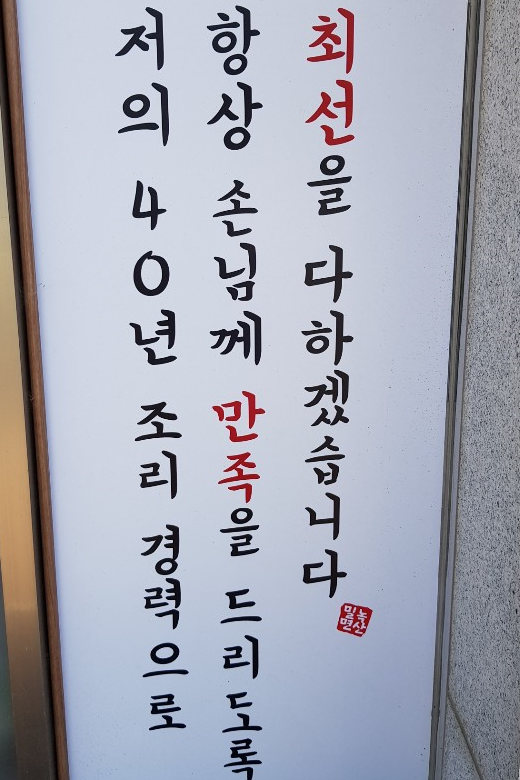 저의 40년 조리 경력으로
항상 손님께 만족을 드리도록
최선을 다하겠습니다
녹산
밀면